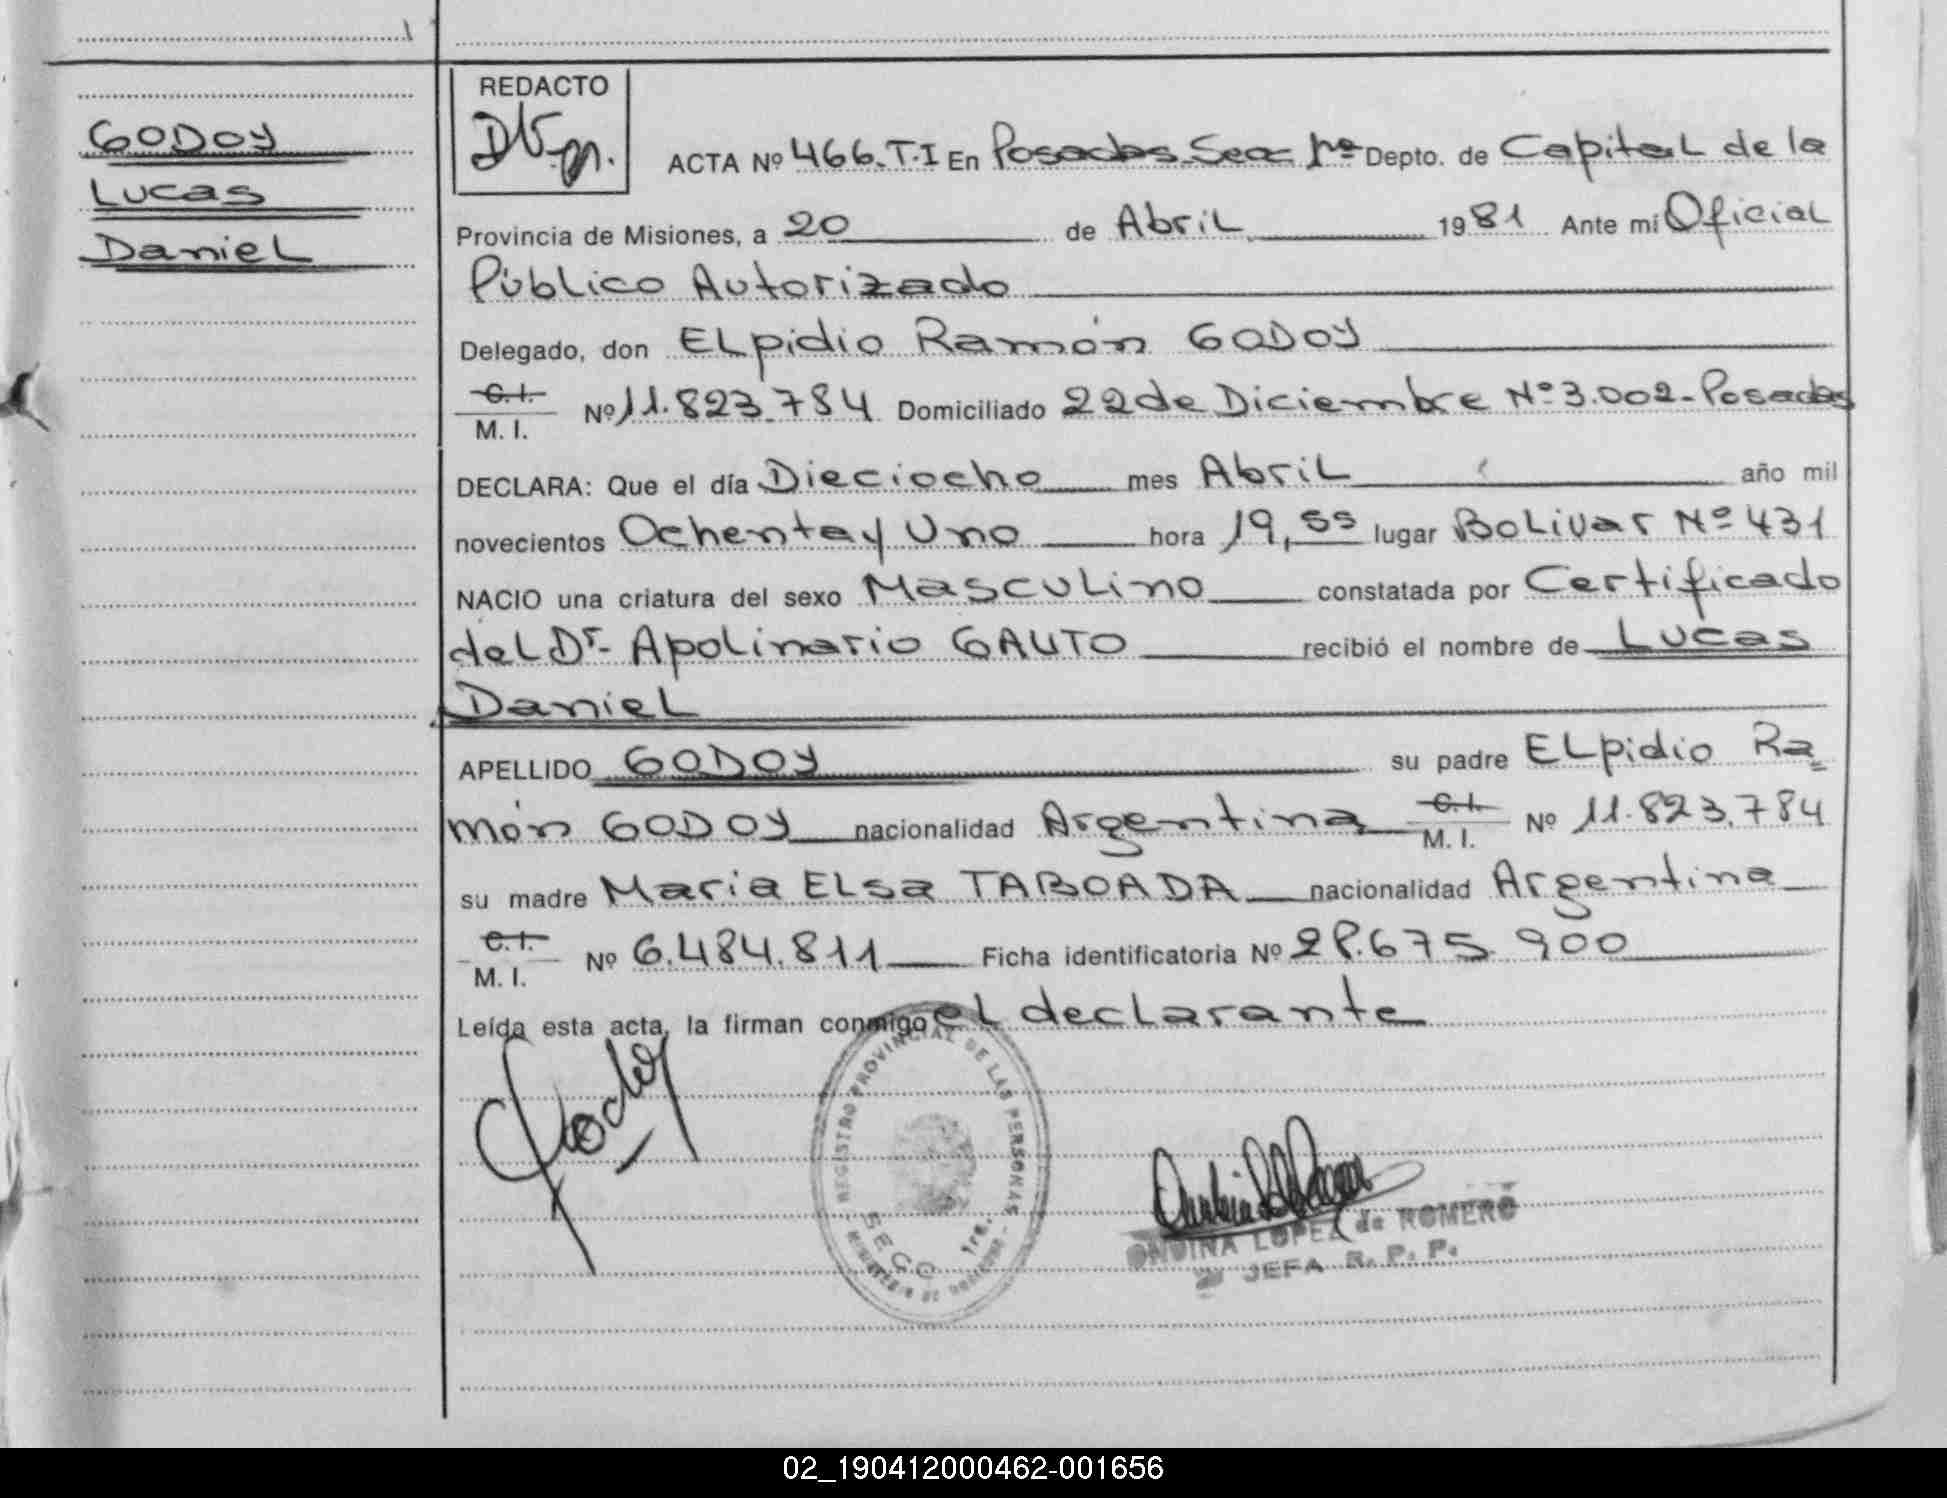 GODOY
Lucas
Daniel
REDACTO
ACTA Nº 466.T.I En Posadas Secc 1ra Depto. de Capital de la
Provincia de Misiones, a 20 de Abril 1981 Ante mí Oficial
Público Autorizado
Delegado, don Elpidio Ramón GODOY
C.I.
M. I. Nº 11.823.784 Domiciliado 22 de Diciembre Nº 3.002 - Posadas
DECLARA: Que el día Dieciocho mes Abril año mil
novecientos Ochenta y Uno hora 19,55 lugar Bolivar Nº 431
NACIO una criatura del sexo Masculino constatada por Certificado
del Dr. Apolinario GAUTO recibió el nombre de Lucas
Daniel
APELLIDO GODOY su padre Elpidio Ra-
món GODOY nacionalidad Argentina C.I. M. I. Nº 11.823.784
su madre Maria Elsa TABOADA nacionalidad Argentina
C.I.
M. I. Nº 6.484.811 Ficha identificatoria Nº 28.675.900
Leída esta acta, la firman conmigo el declarante
Godoy
REGISTRO PROVINCIAL DE LAS PERSONAS
SECC 1ra.
ONDINA LOPEZ de ROMERO
JEFA R. P. P.
02_190412000462-001656